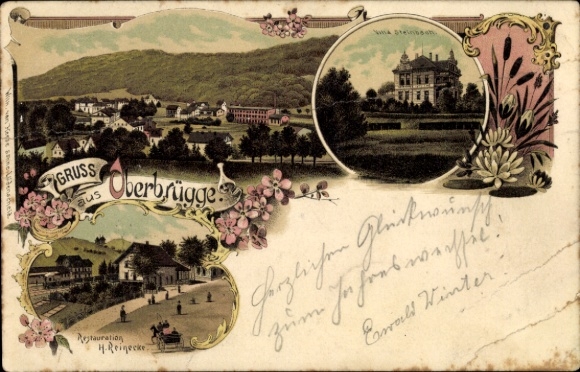 Villa Steinbach.
GRUSS
aus
Oberbrügge.
Restauration
H. Reinecke.
Herzlichen Glückwunsch
zum Jahreswechsel!
Ewald Winter.